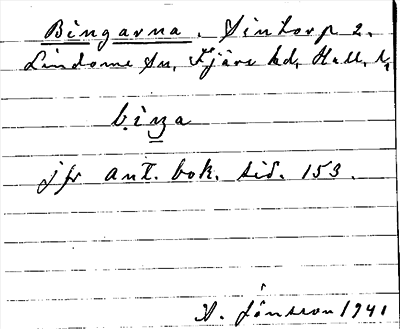 Bingarna. Sintorp 2.
Lindome sn, Fjäre hd, Hall. l.
bìŋa
jfr ant. bok. sid. 153.
A. Jónsson 1941